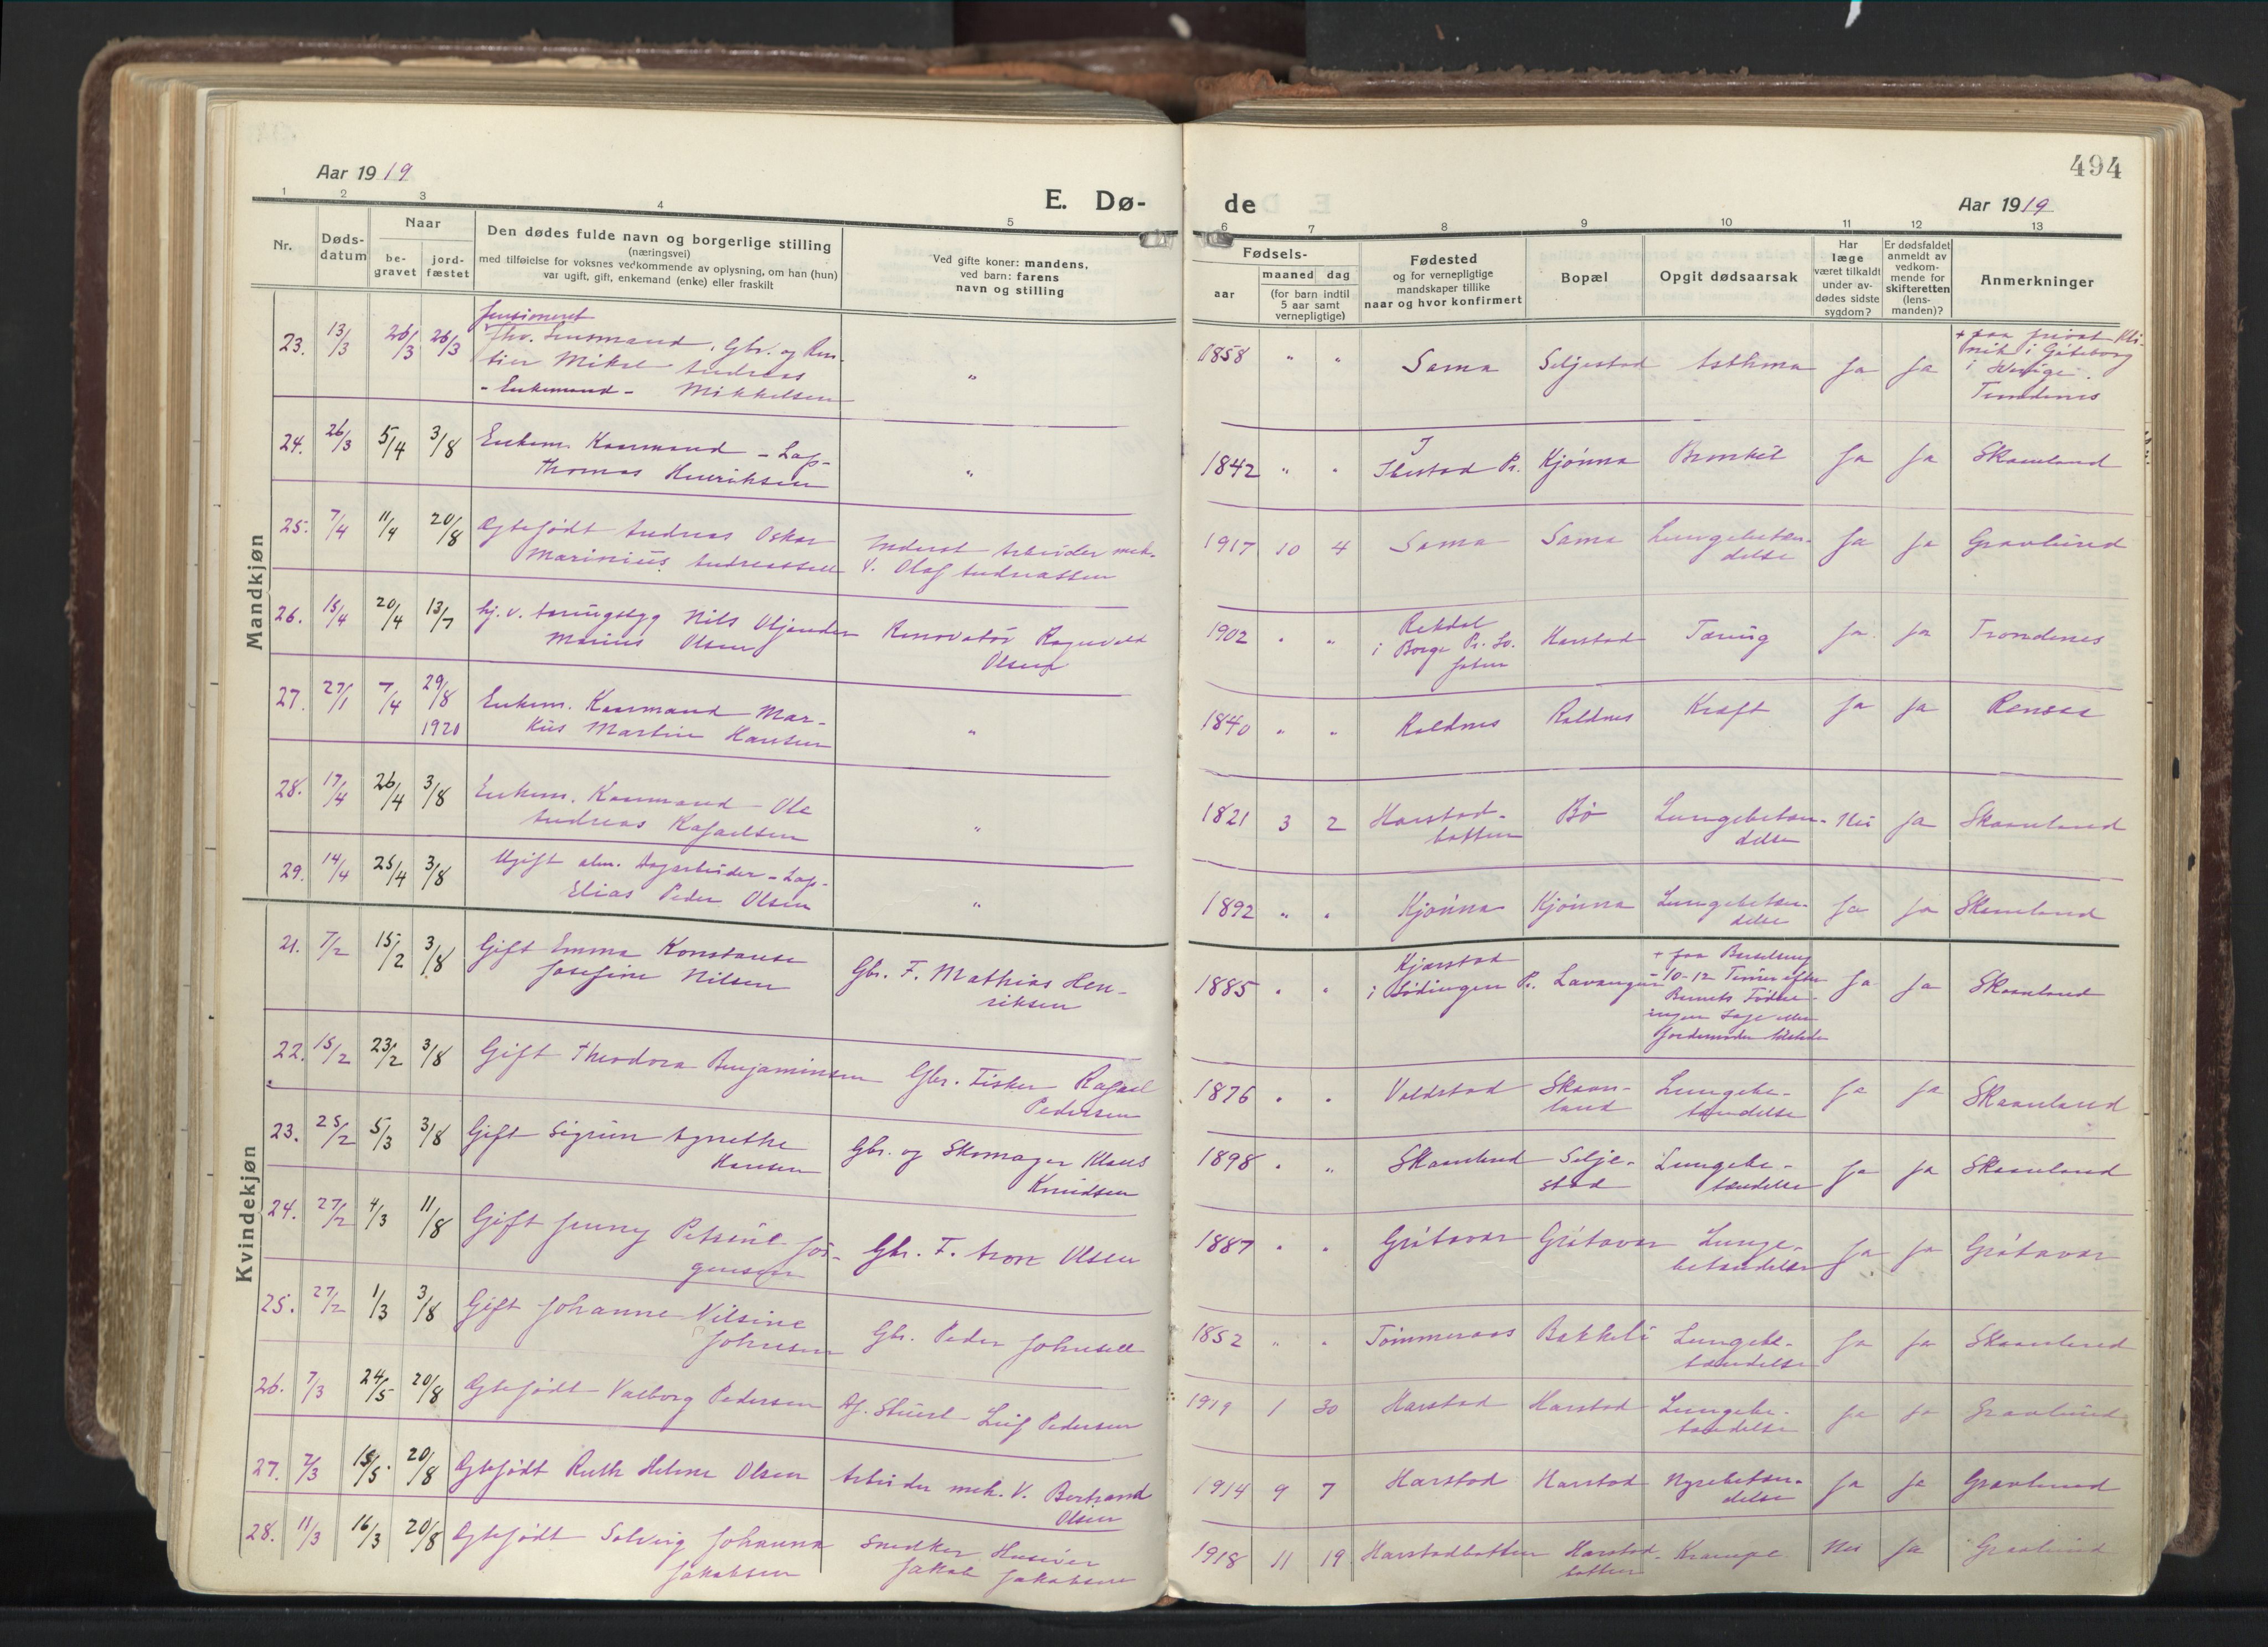 494
Aar 1919
E. Dø-
de
Aar 1919
1 2 3 4 5 6 7 8 9 10 11 12 13
Nr.
Døds-
datum
Naar
be-
gravet
jord-
fæstet
Den dødes fulde navn og borgerlige stilling
(næringsvei)
med tilføielse for voksnes vedkommende av oplysning, om han (hun)
var ugift, gift, enkemand (enke) eller fraskilt
Ved gifte koner: mandens,
ved barn: farens
navn og stilling
Fødsels-
aar
maaned dag
(for barn indtil
5 aar samt
vernepligtige)
Fødested
og for vernepligtige
mandskaper tillike
naar og hvor konfirmert
Bopæl
Opgit dødsaarsak
Har
læge
været tilkaldt
under av-
dødes sidste
sygdom?
Er dødsfaldet
anmeldt av
vedkom-
mende for
skifteretten
(lens-
manden)?
Anmerkninger
Mandkjøn
23. 13/3 26/3 26/3 pensioneret
Fhv. Lensmand, Gbr. og Ren-
tier Mikal Andreas
- Enkemand - Mikkelsen " 1858 " " Sama Seljestad Asthma Ja Ja
+ paa privat Kli-
nik i Göteborg
i Sverige.
Trondenes
24. 26/3 5/4 3/8 Enkem. Kaarmand - Lap-
Thomas Henriksen " 1842 " " I
Ibestad Pr. Kjönna Bronkit Ja Ja Skaanland
25. 7/4 11/4 20/8 Ægtefödt Andreas Oskar
Marinius Andreassen Inderst Arbeider mek.
V. Olaf Andreassen 1917 10 4 Sama Sama Lungebetæn-
delse Ja Ja Gravlund
26. 15/4 20/4 13/7 hj. v. tæringssyg Nils
Marius Olsen Renovatör Ragnvald
Olsen 1902 " " i Borge Pr. Lo-
foten Harstad Tæring Ja Ja Trondenes
27. 27/1 7/4 29/8
1920 Enkem. Kaarmand Mar-
kus Martin Hansen " 1840 " " Roldnes Roldnes Kræft Ja Ja Rensaa
28. 17/4 26/4 3/8 Enkem. Kaarmand - Ole
Andreas Rafaelsen " 1821 3 2 Harstad-
botten Bö Lungebetæn-
delse Nei Ja Skaanland
29. 14/4 25/4 3/8 Ugift alm. Dagarbeider - Lap-
Elias Peder Olsen " 1892 " " Kjönna Kjönna Lungebetæn-
delse Ja Ja Skaanland
Kvindekjøn
21. 7/2 15/2 3/8 Gift Emma Konstanse
Josefine Nilsen Gbr. F. Mathias Hen-
riksen 1885 " " Kjærstad
i Lödingen Pr. Lavangen + paa Barselseng
10-12 Timer efter
Barnets Födsel
ingen Læge eller
Jordemoder tilstede Ja Ja Skaanland
22. 15/2 23/2 3/8 Gift Theodora Benjaminsen Gbr. Fisker Rafael
Pedersen 1876 " " Voldstad Skaan-
land Lungebe-
tændelse Ja Ja Skaanland
23. 25/2 5/3 3/8 Gift Sigrun Agnethe
Hansen Gbr. og Skomager Klaus
Knudsen 1898 " " Skaanland Selje-
stad Lungebe-
tændelse Ja Ja Skaanland
24. 27/2 4/3 11/8 Gift Jenny Petrine Jör-
gensen Gbr. F. Aron Olsen 1887 " " Grötavær Grötavær Lunge-
betændelse Ja Ja Grötavær
25. 27/2 1/3 3/8 Gift Johanne Nilsine
Johnsen Gbr. Peder Johnsen 1852 " " Tömmeraas Bakkeli Lungebe-
tændelse Ja Ja Skaanland
26. 7/3 24/5 20/8 Ægtefödt Valborg Pedersen Leif Pedersen 1919 1 30 Harstad Harstad Lungebe-
tændelse Ja Ja Gravlund
27. 7/3 15/5 20/8 Ægtefödt Ruth Helene Olsen Arbeider mek. V. Bertrand
Olsen 1914 9 7 Harstad Harstad Nyrebetæn-
delse Ja Ja Gravlund
28. 11/3 16/3 20/8 Ægtefödt Solveig Johanna
Jakobsen Snedker Huseier
Jakob Jakobsen 1918 11 19 Harstadbotten Harstad-
botten Krampe Nei Ja Gravlund